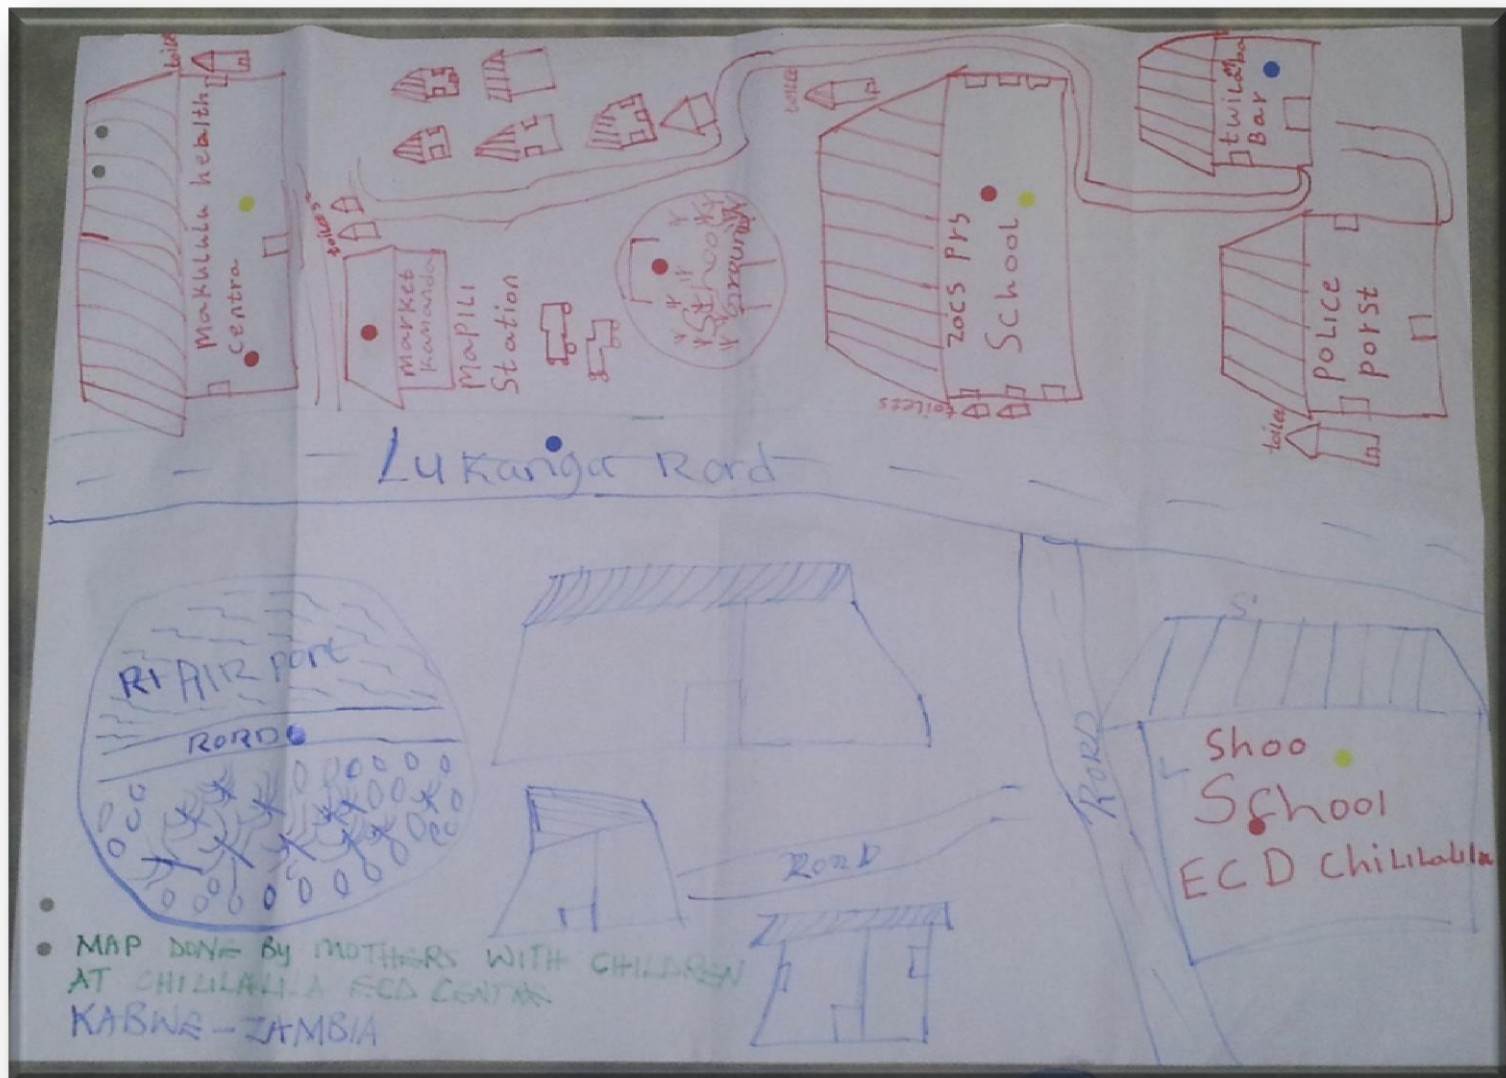 toilet
Makululu heblth
centra
toiles
Market
Kamanda
MaPILI
Station
School
Ground
toilet
ZOCS Prs
School
toilets
twiLamba
Bar
POLICE
Porst
toilet
LuKanga Rord
RI AIR Port
RORD
RORD
Rord
Shoo
School
ECD ChiLiLaLiLa
MAP DONE By MOTHERS WITH CHILDREN
AT CHILILALILA ECD CENTRE
KABWE - ZAMBIA